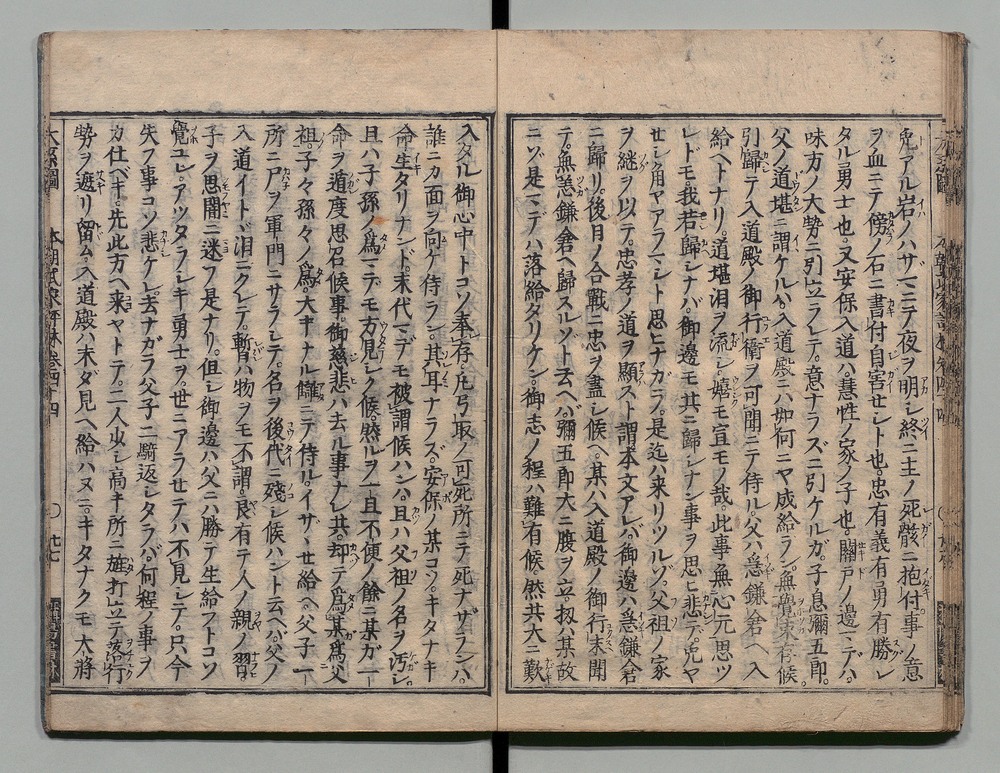 兎アル岩ノハザマニテ夜ヲ明シ終ニ主ノ死骸ニ抱付事ノ意
ヲ血ニテ傍ノ石ニ書付自害セシト也。忠有義有勇有勝レ
タル勇士也。又安保入道ハ。慧性ノ家ノ子也。關戸ノ邊マデハ。
味方ノ大勢ニ引立ラレテ。意ナラズニ引ケルガ。子息彌五郎。
父ノ道堪ニ謂ケルハ。入道殿ニハ如何ニヤ成給ラン。無覺束存候。
引歸テ入道殿ノ御行衛ヲ可聞ニテ侍ル。父ハ急鎌倉ヘ入
給ヘトナリ。道堪泪ヲ流シ。嬉モ宜モノ哉。此事無心元思ツ
レドモ我若歸シナバ。御邊モ其ニ歸シナン事ヲ思ヒ悲デ。兎ヤ
セン角ヤアラマシト思ヒナガラ。是迄ハ来リツルゾ。父祖ノ家
ヲ継ヲ以テ。忠孝ノ道ヲ顯スト謂本文アレバ。御邊ハ急鎌倉
ニ歸リ。後月ノ合戰ニ忠ヲ盡シ候ヘ。某ハ入道殿ノ御行末聞
テ。無恙鎌倉ヘ歸スルゾト云ヘバ。彌五郎大ニ腹ヲ立。扨ハ某故
ニゾ是マデハ落給タリケン。御志ノ程ハ難有候。然共大ニ歎
入タル御心中トコソ奉存。凡弓取ノ可死所ニテ死ナザランハ。
誰ニカ面ヲ向ケ侍ラン。其耳ナラズ。安保ノ某コソ。キタナキ
命生タリナンド。末代マデモ被謂候ハン。且ハ父祖ノ名ヲ汚シ。
且ハ子孫ノ爲マデモ方見シク候。然ルヲ一旦不便ノ餘ニ某ガ一
命ヲ道度思召候事。御慈悲ハ去ル事ナレ共。却テ爲某爲父
祖。子々孫々ノ爲。大キナル讎ニテ侍ル。イザヽセ給ヘ。父子一
所ニ尸ヲ軍門ニサラシテ。名ヲ後代ニ殘シ候ハントト云ヘバ。父ノ
入道イトド泪ニクレテ。暫ハ物ヲモ不謂。良有テ人ノ親ノ習。
子ヲ思闇ニ迷フ是ナリ。但シ御邊ハ父ニハ勝テ生給フトコソ
覺ユレ。アツタラシキ勇士ヲ。世ニアラセテハ不見シテ。只今
失フ事コソ悲ケレ。去ナガラ父子二騎返シタラバ。何程ノ事ヲ
カ仕ベキ。先此方ヘ来ヤトテ。二人少シ高キ所ニ旌打立テ。落行
勢ヲ遮リ留ム。入道殿ハ末ダ見ヘ給ハヌニ。キタナクモ大將